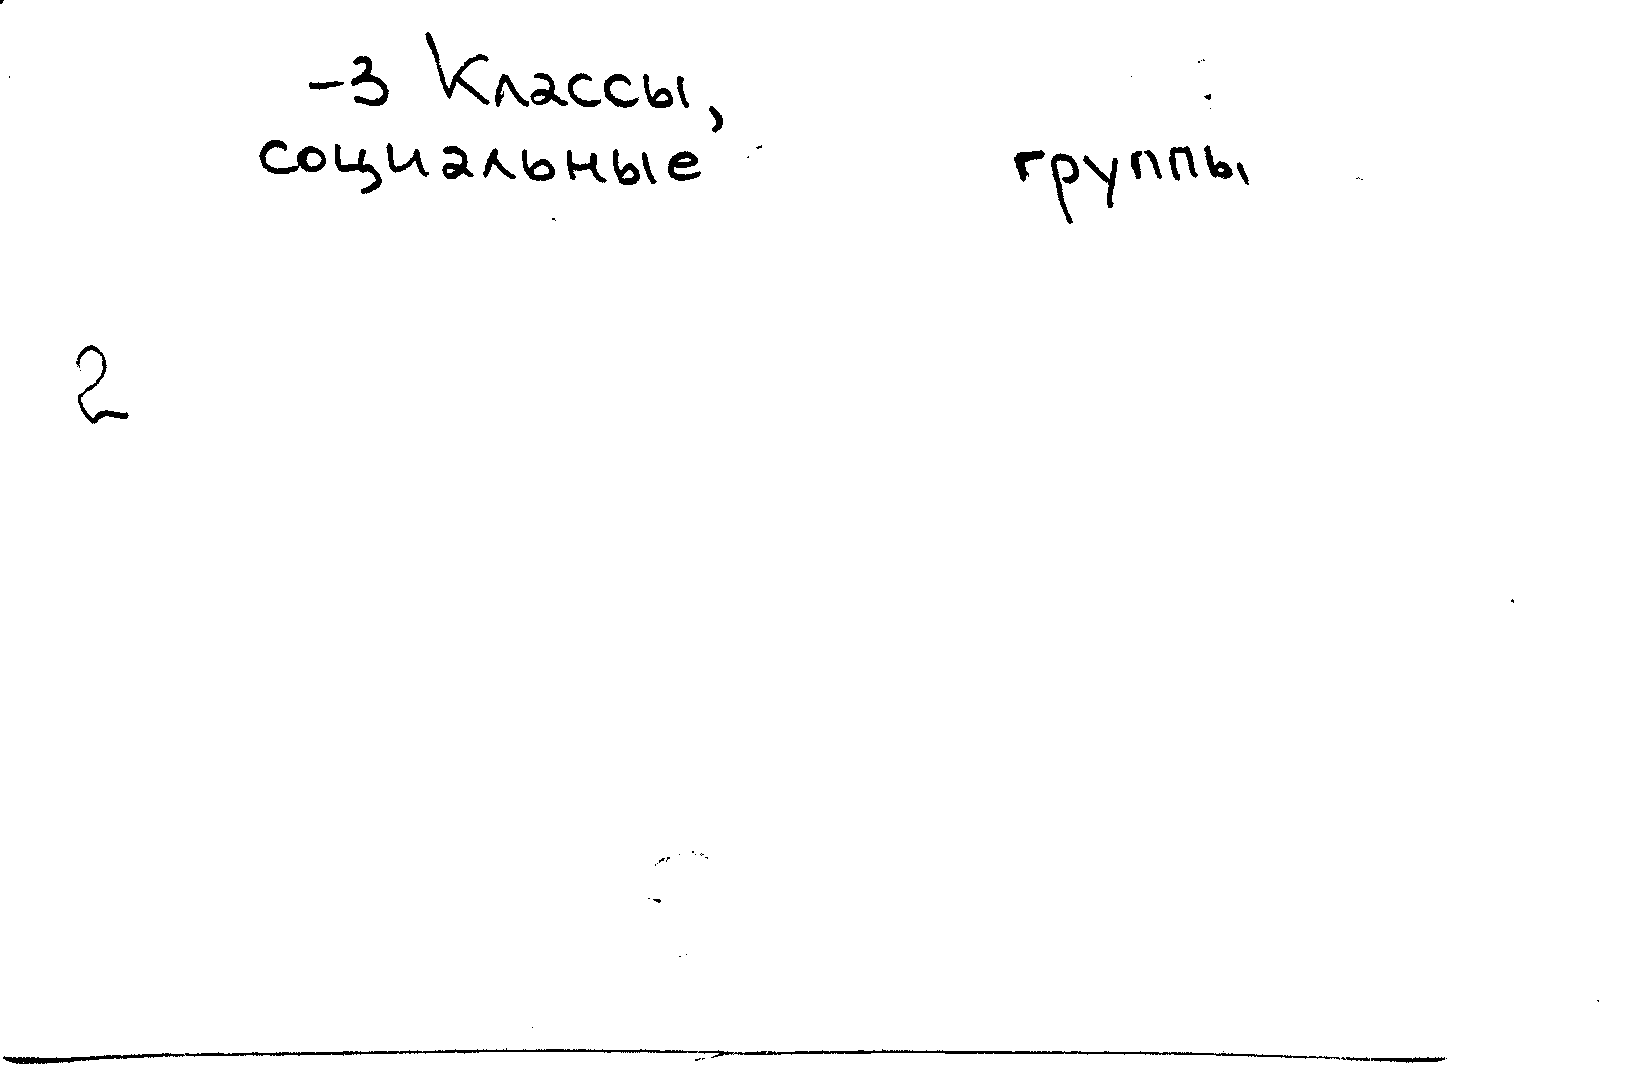 -3 Классы,
социальные группы
2